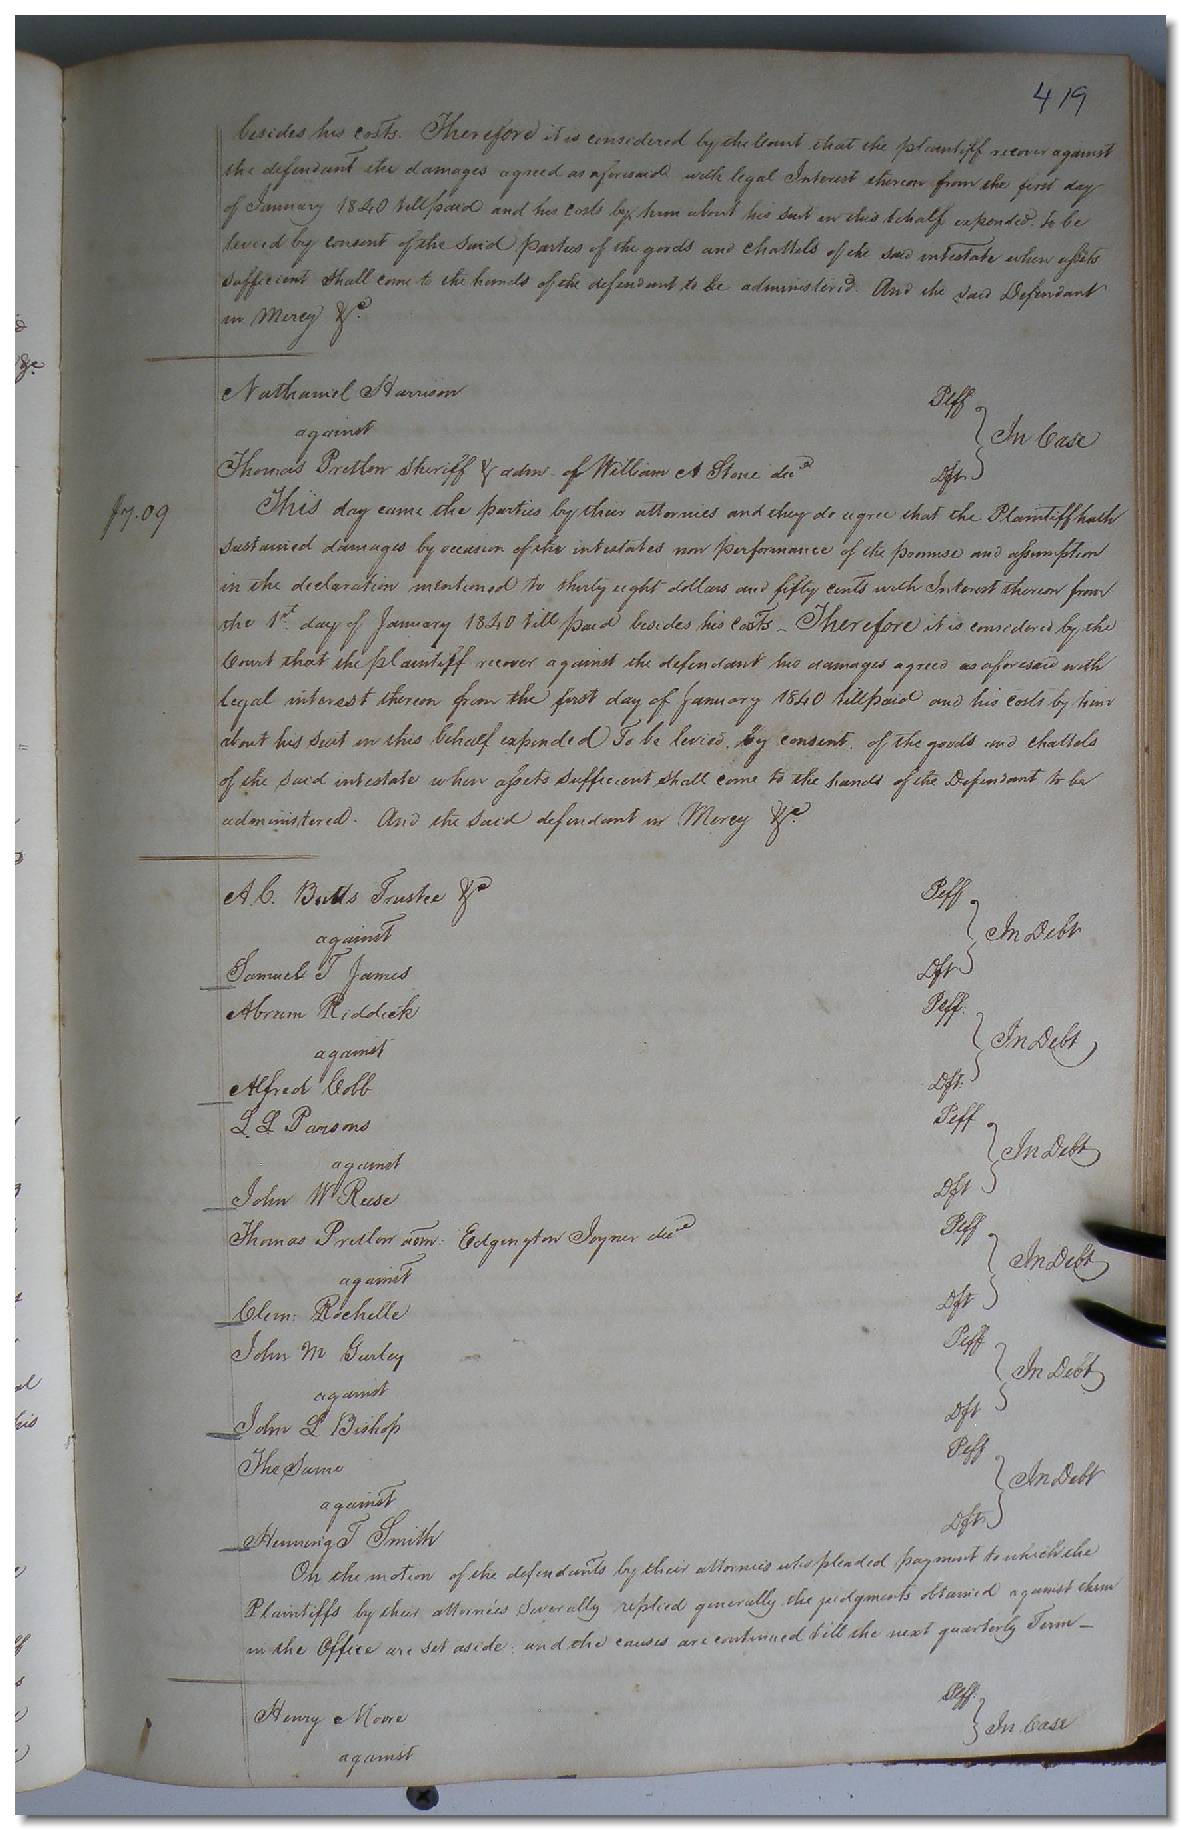 419
besides his costs. Therefore it is considered by the Court that the plaintiff recover against
the defendant the damages agreed as aforesaid with legal Interest thereon from the first day
of January 1840 till paid and his costs by him about his suit in this behalf expended. To be
levied by consent of the said parties of the goods and chattels of the said intestate when assets
sufficient shall come to the hands of the defendant to be administered. And the said Defendant
in Mercy &c.
Nathaniel Harrison Peff
against In Case
Thomas Pretlow Sheriff & adm. of William A Stone decd Dft
$7.09
This day came the parties by their attornies and they do agree that the Plaintiff hath
sustained damages by occasion of the intestates non performance of the promise and assumption
in the declaration mentioned to thirty eight dollars and fifty cents with Interest thereon from
the 1st. day of January 1840 till paid besides his costs – Therefore it is considered by the
Court that the plaintiff recover against the defendant his damages agreed as aforesaid with
legal interest thereon from the first day of January 1840 till paid and his costs by him
about his suit in this behalf expended To be levied, by consent, of the goods and chattels
of the said intestate when assets sufficient shall come to the hands of the Defendant to be
administered. And the said defendant in Mercy &c.
A. C. Butts Trustee &c Peff
against In Debt
Samuel T James Dft
Abram Riddick Peff.
against In Debt
Alfred Cobb Dft.
L. L Parsons Peff
against In Debt
John W Reese Dft
Thomas Pretlow adm: Edgington Joyner decd Peff
against In Debt
Clem: Rochelle Dft
John M Gurley Peff
against In Debt
John L Bishop Dft
The Same Peff
against In Debt
Henning T Smith Dft
On the motion of the defendants by their attornies who pleaded payment to which the
Plaintiffs by their attornies severally replied generally the judgments obtained against them
in the Office are set aside: and the causes are continued till the next quarterly Term –
Henry Moore Peff.
against In Case